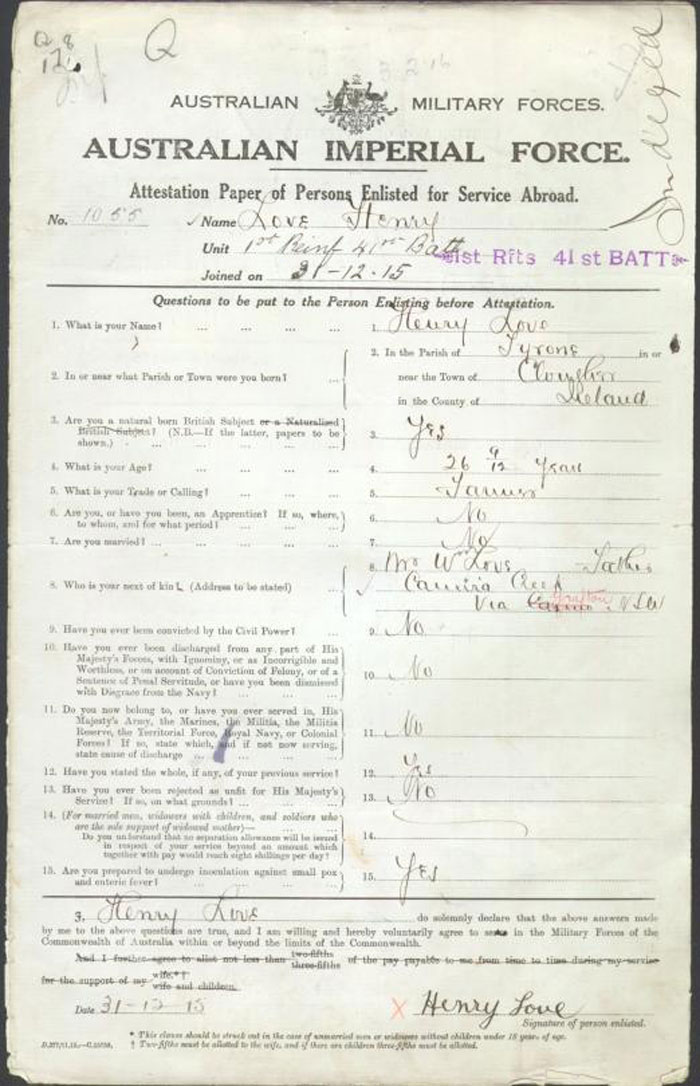 Q 8
Q
3.2.16
AUSTRALIAN MILITARY FORCES.
AUSTRALIAN IMPERIAL FORCE.
Attestation Paper of Persons Enlisted for Service Abroad.
No. 1055 Name Love Henry
Unit 1st Reinf 41st Batt 1st Rfts 41st BATT
Joined on 31-12-15
Questions to be put to the Person Enlisting before Attestation.
1. What is your Name? ... ... ... ... 1. Henry Love
2. In or near what Parish or Town were you born? ... 2. In the Parish of Tyrone in or
near the Town of
in the County of Ireland
3. Are you a natural born British Subject or a Naturalized
British Subject? (N.B.—If the latter, papers to be
shown.) ... ... ... ... 3. Yes
4. What is your Age? ... ... ... ... 4. 26 9/12 years
5. What is your Trade or Calling? ... ... ... 5. Farmer
6. Are you, or have you been, an Apprentice? If so, where,
to whom, and for what period? ... ... ... 6. No
7. Are you married? ... ... ... ... 7. No
8. Who is your next of kin? (Address to be stated) ... 8. Mr Wm Love Father
Camira Creek
Via Casino Grafton N.S.W
9. Have you ever been convicted by the Civil Power? ... 9. No
10. Have you ever been discharged from any part of His
Majesty's Forces, with Ignominy, or as Incorrigible and
Worthless, or on account of Conviction of Felony, or of a
Sentence of Penal Servitude, or have you been dismissed
with Disgrace from the Navy? ... ... 10. No
11. Do you now belong to, or have you ever served in, His
Majesty's Army, the Marines, the Militia, the Militia
Reserve, the Territorial Force, Royal Navy, or Colonial
Forces? If so, state which, and if not now serving,
state cause of discharge ... ... 11. No
12. Have you stated the whole, if any, of your previous service? 12. Yes
13. Have you ever been rejected as unfit for His Majesty's
Service? If so, on what grounds? ... ... ... 13. No
14. (For married men, widowers with children, and soldiers who
are the sole support of widowed mother)— ... ...
Do you understand that no separation allowance will be issued
in respect of your service beyond an amount which
together with pay would reach eight shillings per day? 14.
15. Are you prepared to undergo inoculation against small pox
and enteric fever? ... ... ... ... 15. Yes
I, Henry Love do solemnly declare that the above answers made
by me to the above questions are true, and I am willing and hereby voluntarily agree to serve in the Military Forces of the
Commonwealth of Australia within or beyond the limits of the Commonwealth.
And I further agree to allot not less than two-fifths three-fifths of the pay payable to me from time to time during my service
for the support of my wife.*† wife and children.
Date 31-12-15 X Henry Love
Signature of person enlisted.
* This clause should be struck out in the case of unmarried men or widowers without children under 18 years of age.
† Two-fifths must be allotted to the wife, and if there are children three-fifths must be allotted.